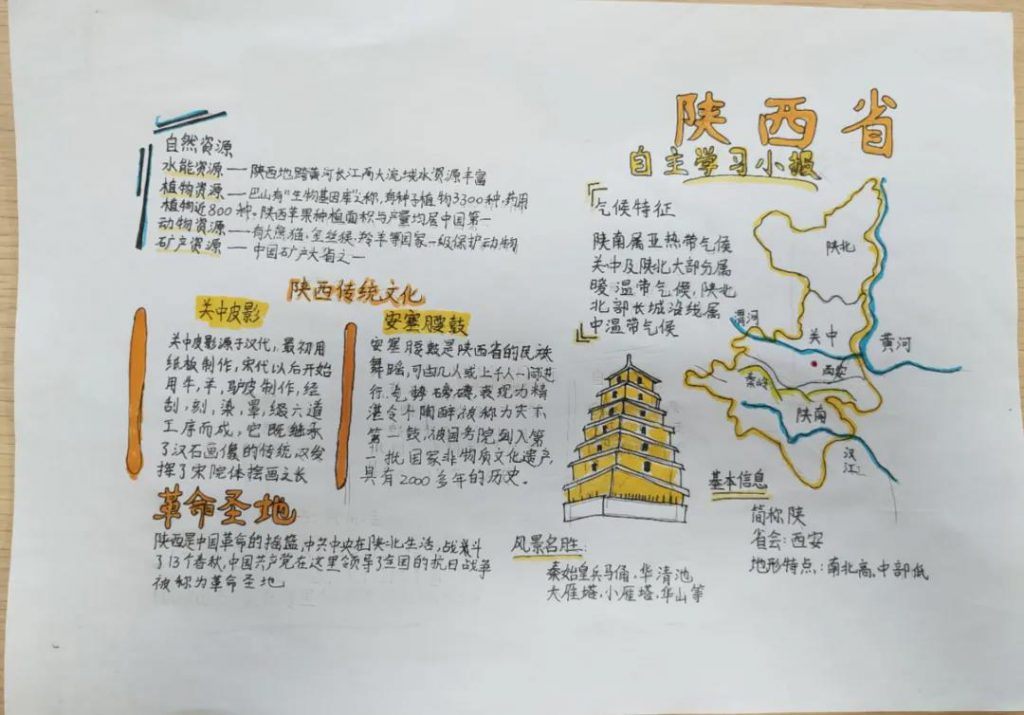 陕西省
自主学习小报
自然资源
水能资源——陕西地跨黄河长江两大流域水资源丰富
植物资源——巴山有"生物基因库"之称,有种子植物3300种,药用
植物近800种。陕西苹果种植面积与产量均居中国第一
动物资源——有大熊猫,金丝猴,羚羊等国家一级保护动物
矿产资源——中国矿产大省之一
陕西传统文化
关中皮影
关中皮影源于汉代,最初用
纸板制作,宋代以后开始
用牛,羊,驴皮制作,经
刮,刻,染,罩,缀六道
工序而成,它既继承
了汉石画像的传统,以发
挥了宋院体绘画之长
安塞腰鼓
安塞腰鼓是陕西省的民族
舞蹈,可由几人或上千人一同进
行,气势磅礴,表现力精
湛令人陶醉,被称为天下
第一鼓,被国务院列入第
一批国家非物质文化遗产,
具有2000多年的历史。
革命圣地
陕西是中国革命的摇篮,中共中央在陕北生活,战斗
了13个春秋,中国共产党在这里领导了全国的抗日战争
被称为革命圣地
气候特征
陕南属亚热带气候
关中及陕北大部分属
暖温带气候,陕北
北部长城沿线属
中温带气候
陕北
渭河
关中
黄河
西安
秦岭
陕南
汉江
风景名胜
秦始皇兵马俑,华清池
大雁塔,小雁塔,华山等
基本信息
简称陕
省会:西安
地形特点:南北高,中部低